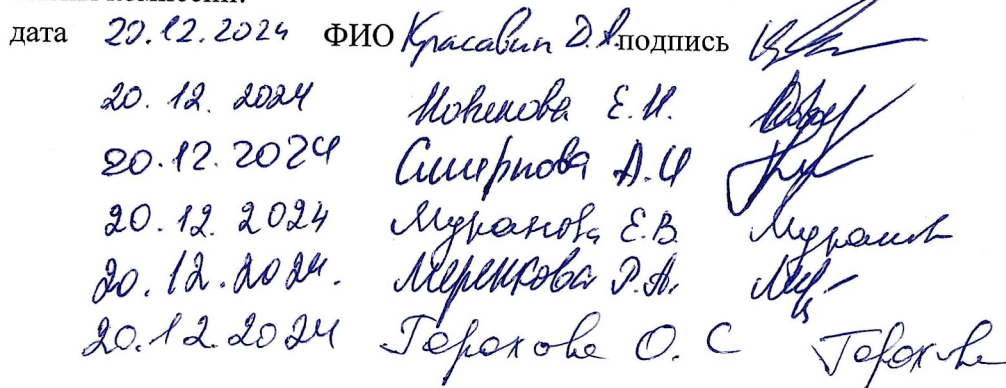 дата 20.12.2024 ФИО Красавин Д.А. подпись
20.12.2024 Новикова Е.И.
20.12.2024 Смирнова А.И
20.12.2024 Муранова Е.В. Муранов
20.12.2024. Меренкова Р.А.
20.12.2024 Горохова О.С Горохова